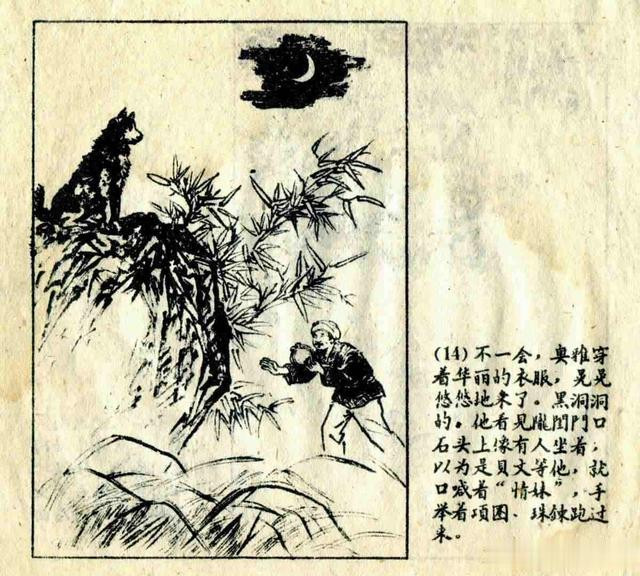 (14) 不一会，奥雅穿
着华丽的衣服，晃晃
悠悠地来了。黑洞洞
的。他看见陇闺門口
石头上像有人坐着；
以为是貝文等他，就
口喊着“情妹”，手
举着项圈、珠鍊跑过
来。